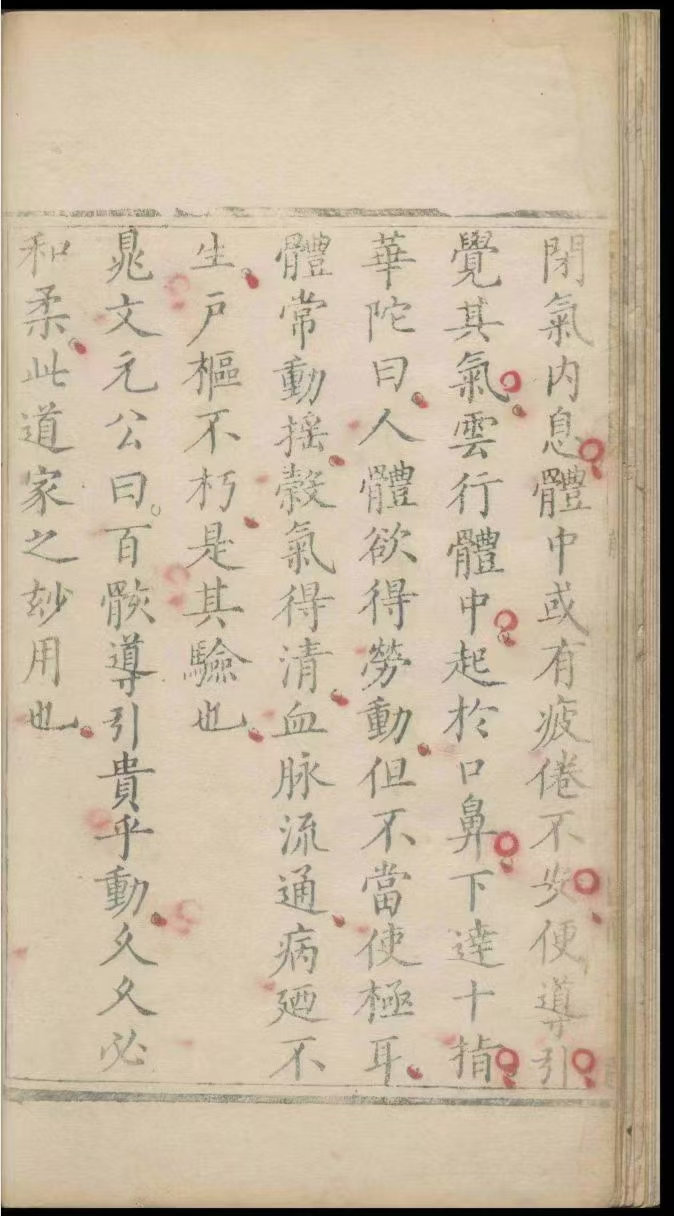 閉氣内息體中或有疲倦不安便導引
覺其氣雲行體中起於口鼻下達十指
華陀曰人體欲得勞動但不當使極耳
體常動揺穀氣得清血脉流通病廼不
生戸樞不朽是其驗也
晁文元公曰百骸導引貴乎動久久必
和柔此道家之玅用也